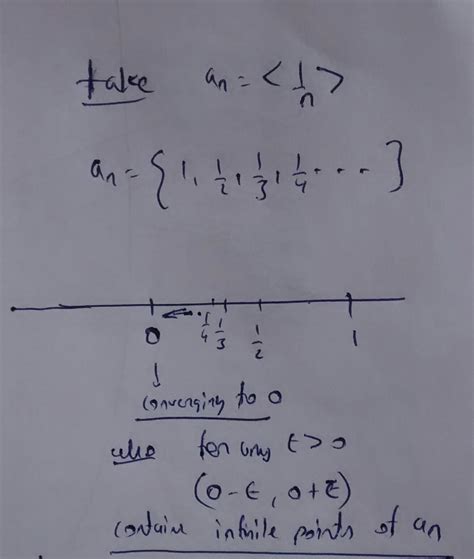 take aₙ = < 1/n >
aₙ = { 1, 1/2, 1/3, 1/4 . . . }
0 1/4 1/3 1/2 1
↓
converging to 0
also for any ε > 0
(0-ε, 0+ε)
contains infinite points of aₙ